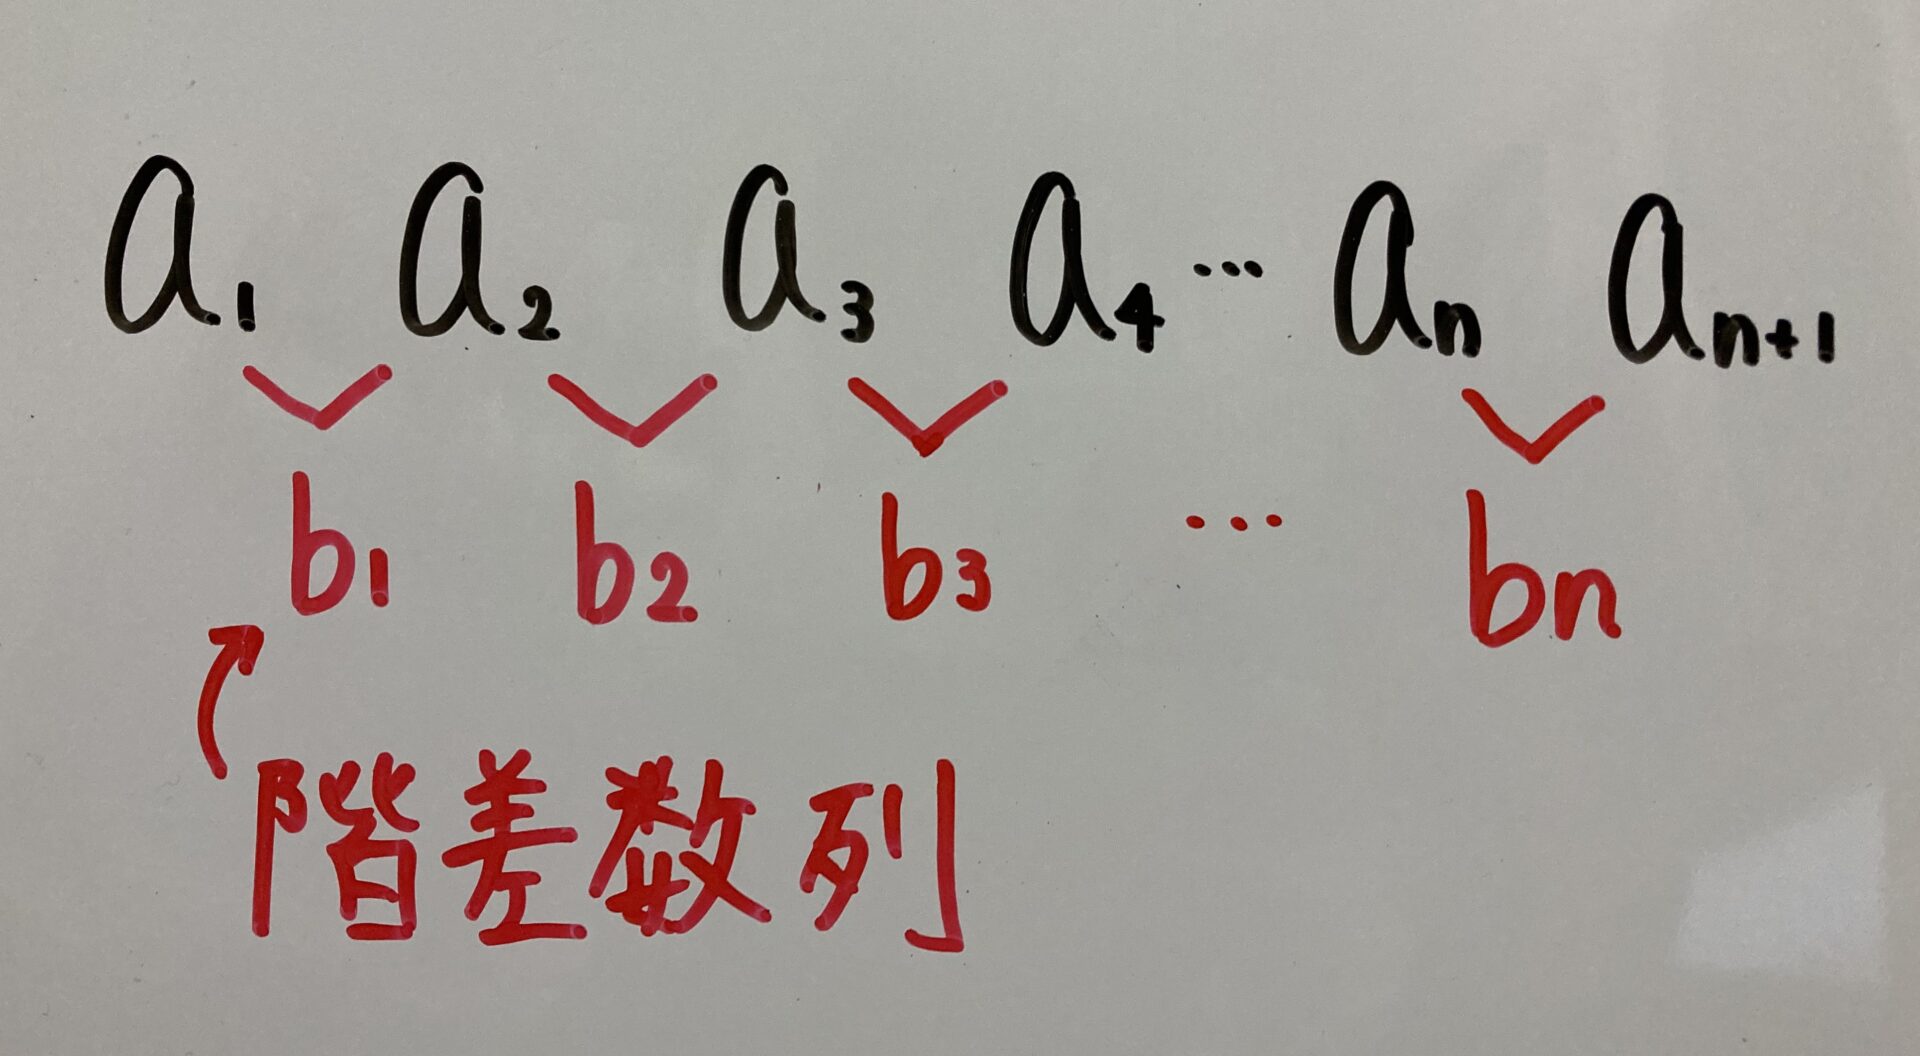 a₁ a₂ a₃ a₄ … aₙ aₙ₊₁
b₁ b₂ b₃ … bn
階差数列